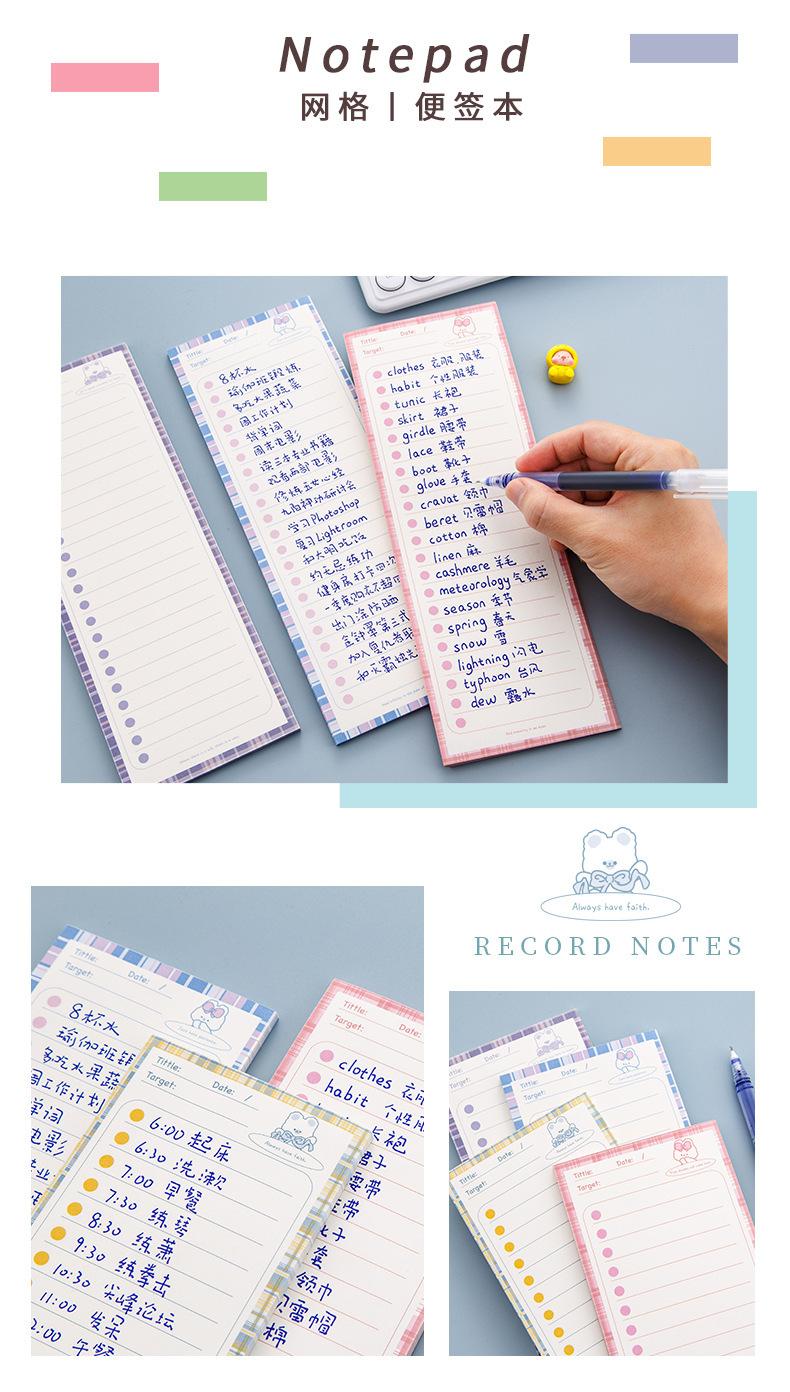 Notepad
网格丨便签本
Tittle:
Date: /
Target:
8杯水
瑜伽班锻炼
多吃水果蔬菜
周工作计划
背单词
周末电影
读三本专业书籍
观看两部电影
修炼玉女心经
九阳神功研讨会
学习Photoshop
复习Lightroom
和大明吃饭
约无忌练功
健身房打卡四次
季度购衣不超
出门涂防晒
金钟罩第三式
加入复仇者联
和灭霸抢先
Tittle:
Date: /
Target:
clothes 衣服.服装
habit 个性服装
tunic 长袍
skirt 裙子
girdle 腰带
lace 鞋带
boot 靴子
glove 手套
cravat 领巾
beret 贝雷帽
cotton 棉
linen 麻
cashmere 羊毛
meteorology 气象学
season 季节
spring 春天
snow 雪
lightning 闪电
typhoon 台风
dew 露水
Always have faith.
RECORD NOTES
Tittle:
Date: /
Target:
8杯水
瑜伽班锻
多吃水果蔬
周工作计划
单词
电影
Tittle:
Date: /
Target:
Always have faith.
6:00 起床
6:30 洗漱
7:00 早餐
7:30 练琴
8:30 练萧
9:30 练拳击
10:30 尖峰论坛
11:00 发呆
2:00 午餐
Tittle:
Date:
Target:
clothes 衣服
habit 个性服
长袍
裙子
腰带
鞋带
子
套
领巾
贝雷帽
棉
Date: /
Tittle:
Date: /
Target:
Tittle:
Date: /
Target:
Tittle:
Date: /
Target: